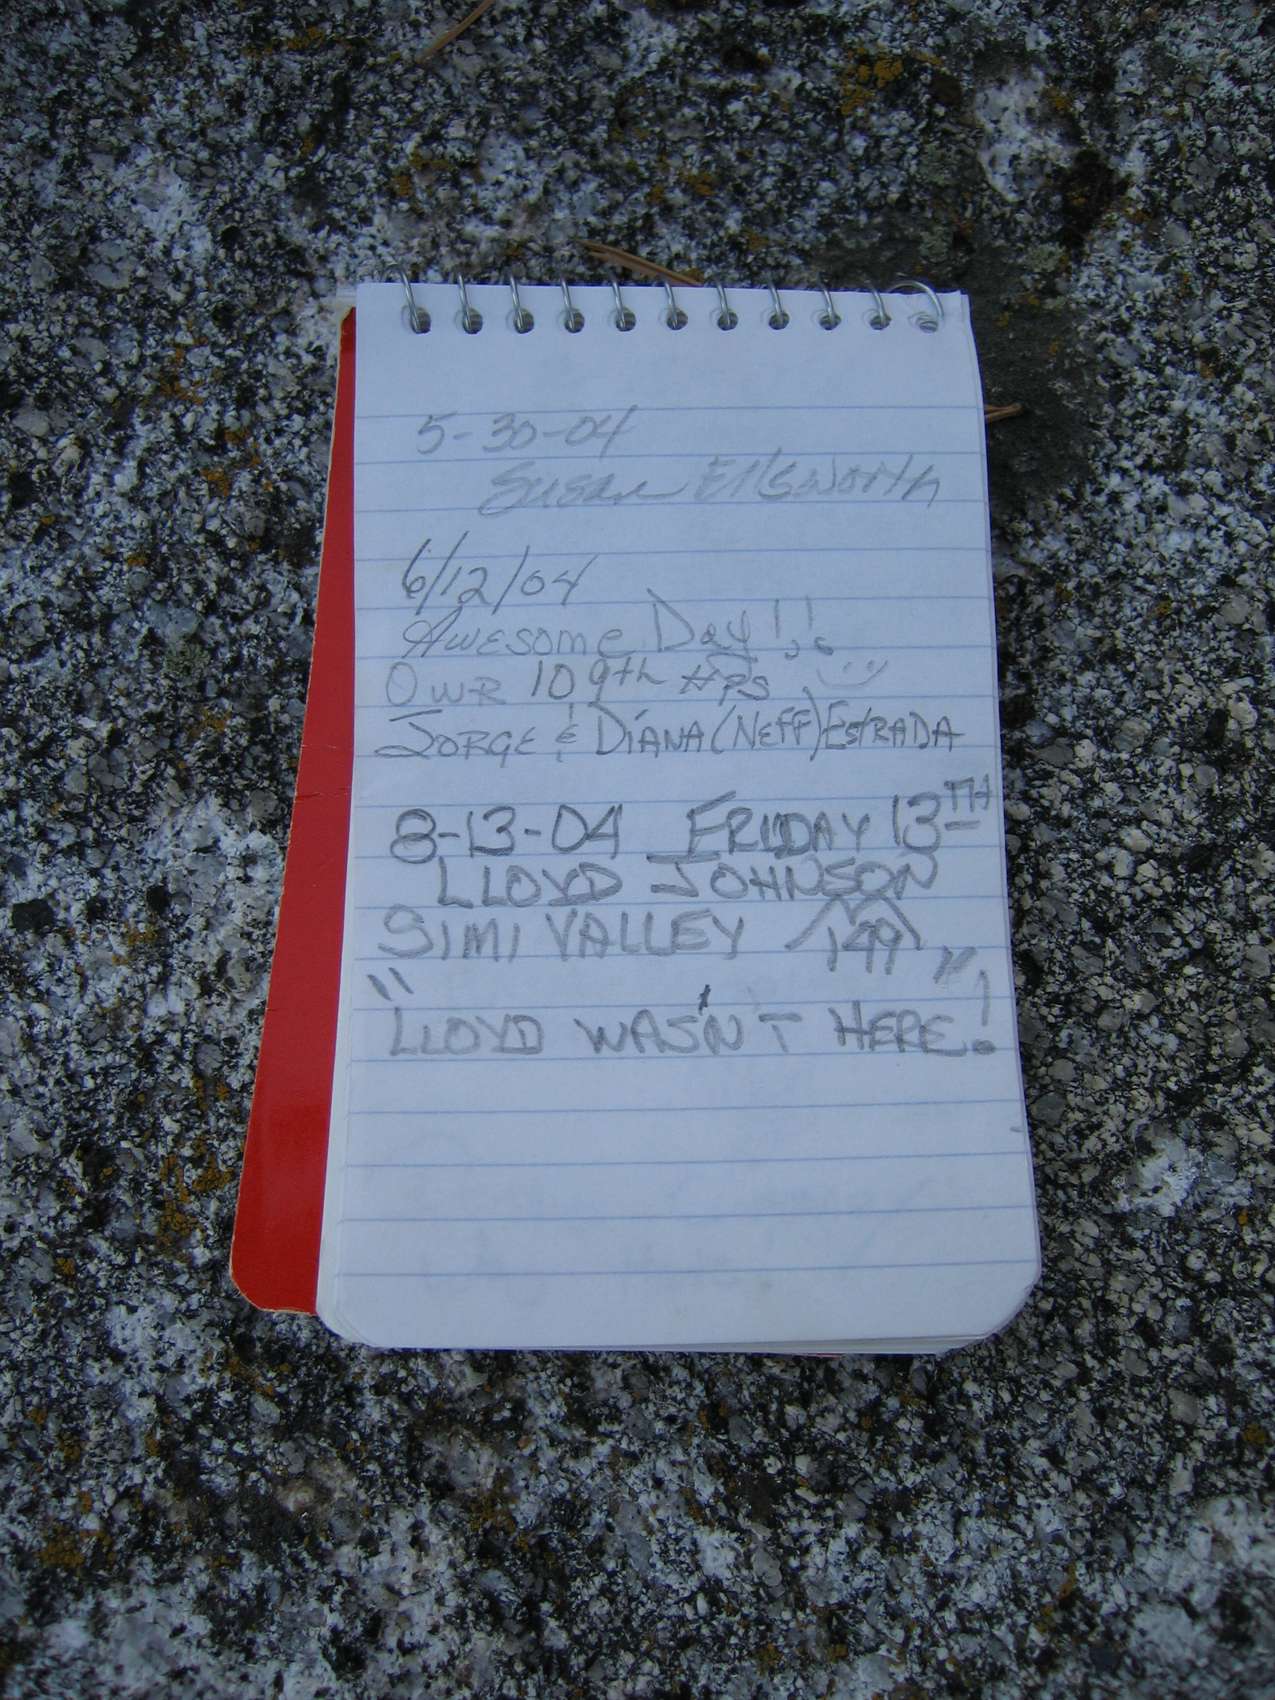 5-30-04
Susan Ellsworth
6/12/04
Awesome Day!!
Owr 109th HPS
Jorge & Diana (Neff) Estrada
8-13-04 FRIDAY 13TH
LLOYD JOHNSON
SIMI VALLEY 149
"LLOYD WASN'T HERE"!